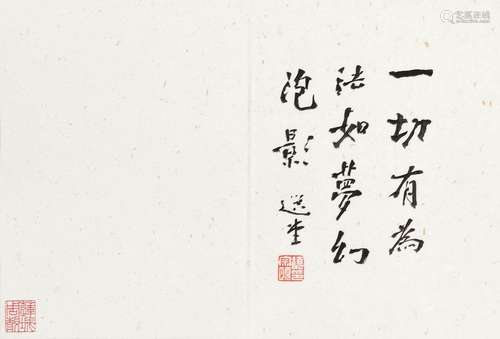 一切有為
法如夢幻
泡影 選堂